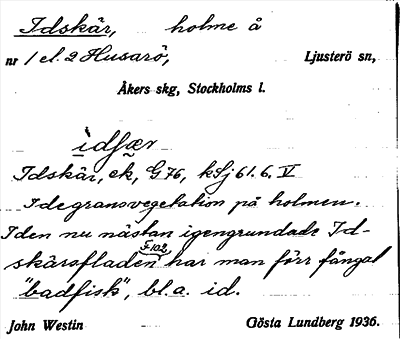 Idskär, holme å
nr 1 el. 2 Husarö, Ljusterö sn,
Åkers skg, Stockholms l.
idſær
Idskär, ek, G 76, kSj 61.6. V
Idegransvegetation på holmen.
I den nu nästan igengrundade Id-
F 102
skärsfladen har man förr fångat
"badfisk", bl.a. id.
John Westin Gösta Lundberg 1936.